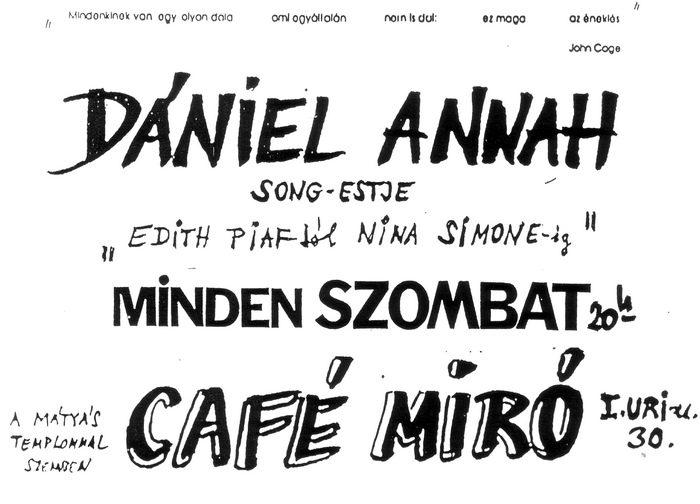 "Mindenkinek van egy olyan dala ami egyáltalán nem is dal: ez maga az éneklés"
John Cage
DÁNIEL ANNAH
SONG-ESTJE
"EDITH PIAF-tól NINA SIMONE-ig"
MINDEN SZOMBAT 20h
CAFÉ MIRÓ
I. URI u. 30.
A MÁTYÁS
TEMPLOMMAL
SZEMBEN